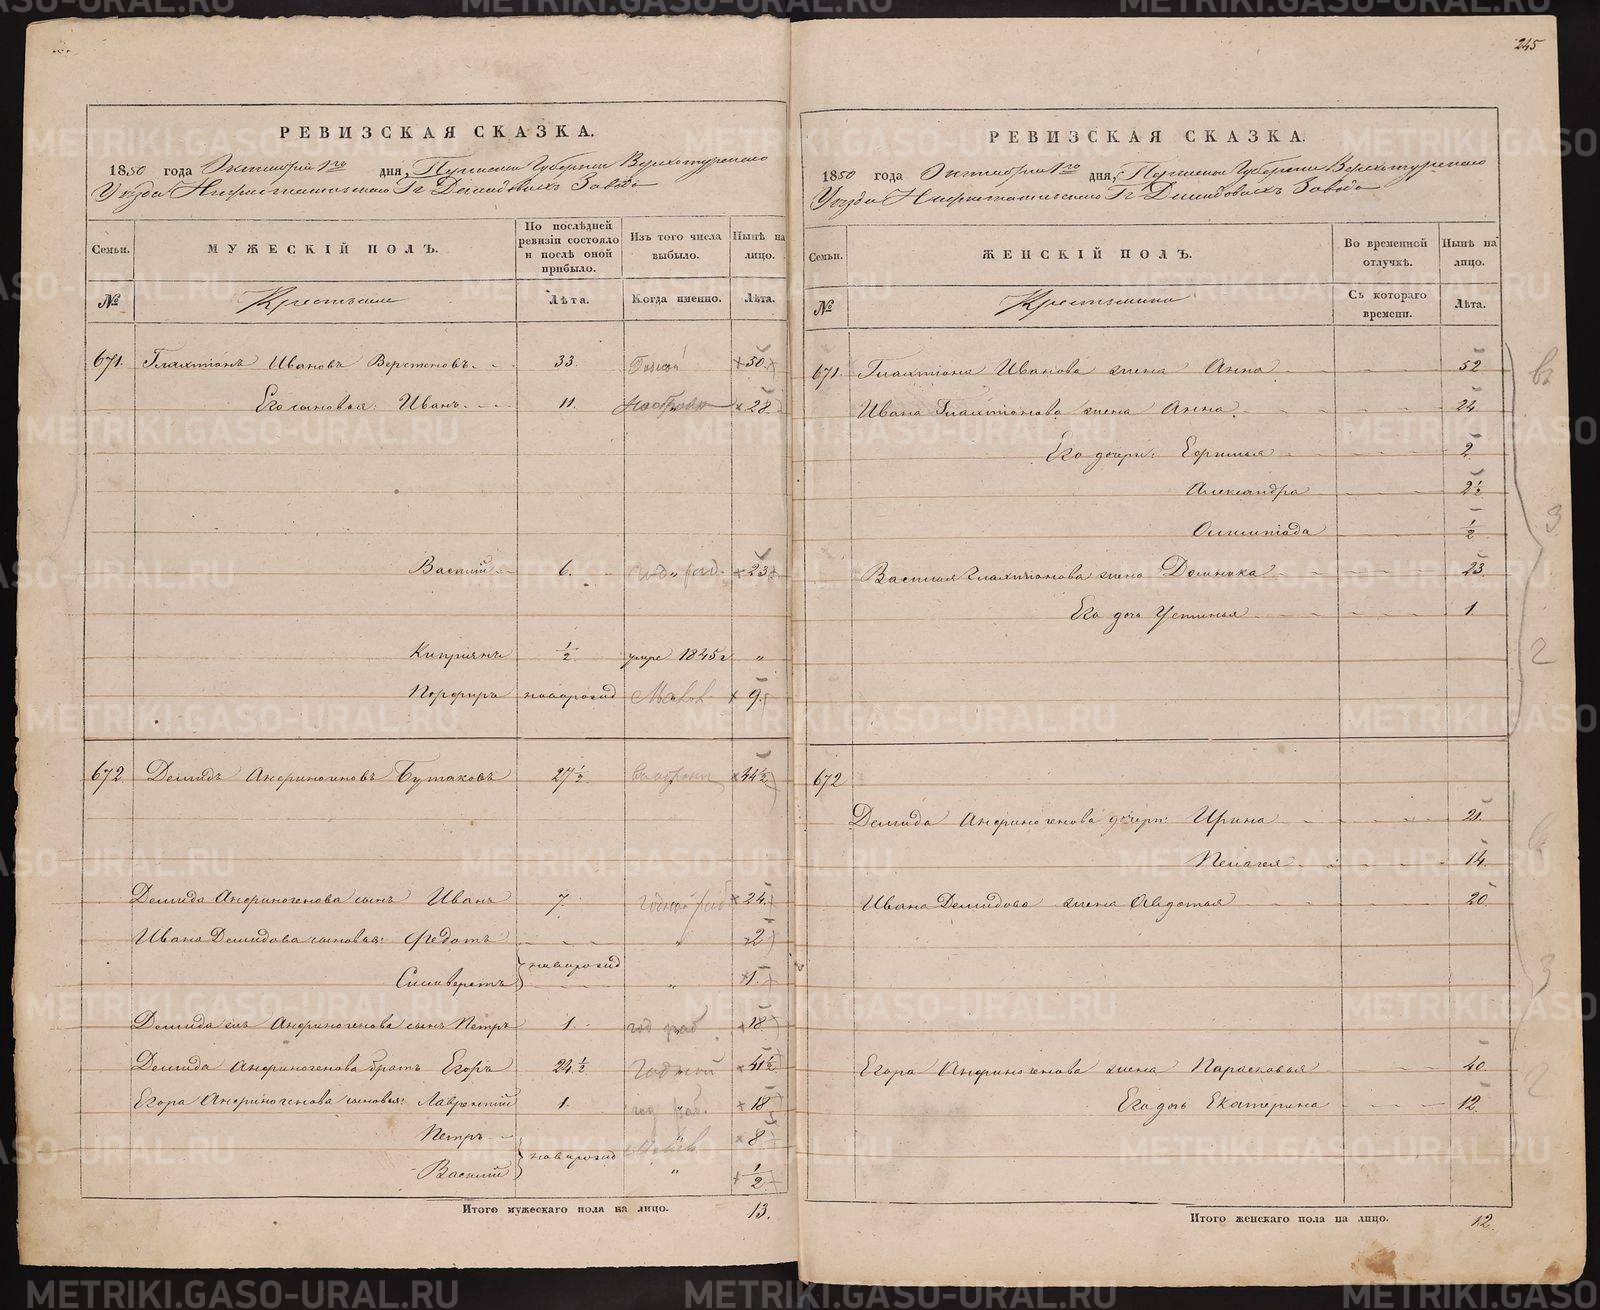 245
РЕВИЗСКАЯ СКАЗКА.
1850 года Октября 1го дня, Пермской Губернии Верхотурского
Уезда Нижнетагильского Гг Демидовых Завода
Семьи. МУЖЕСКІЙ ПОЛЪ. По послѣдней ревизіи состояло и послѣ оной прибыло. Изъ того числа выбыло. Нынѣ на лицо.
№ Крестьяне Лѣта. Когда именно. Лѣта.
671. Галахтіонъ Ивановъ 33. 50
Его сыновья: Иванъ 11. 28
Василій 6. 23
Кипріянъ ½ умре 1845 г „
Порфиръ новорожд 9
672 Демидъ Андриногеновъ Бутаковъ 27½ 44½
Демида Андриногенова сынъ Иванъ 7. 24
Ивана Демидова сыновья: Федотъ „ 2
новорожд
Селиверстъ „ 1
Демида Андриногенова сынъ Петръ 1. 18
Демида Андриногенова братъ Егоръ 24½ Годной 41½
Егора Андриногенова сыновья: Лаврентій 1. 18
Петръ „ 8
новорожд
Василій „ ½
Итого мужескаго пола на лицо. 13.
РЕВИЗСКАЯ СКАЗКА.
1850 года Октября 1го дня, Пермской Губернии Верхотурского
Уезда Нижнетагильского Гг Демидовых Завода
Семьи. ЖЕНСКІЙ ПОЛЪ. Во временной отлучкѣ. Нынѣ на лицо.
№ Крестьянки Съ котораго времени. Лѣта.
671 Галахтіона Иванова жена Анна 52
Ивана Галахтіонова жена Анна 24
Его дочери: 2
Александра 2½
Олимпіада ½
Василья Галахтіонова жена Домника 23
Его дочь Устинья 1
672
Демида Андриногенова дочери: Ирина 21
Пелагея 14
Ивана Демидова жена Авдотья 20
Егора Андриногенова жена Парасковья 40
Его дочь Екатерина 12
3
2
3
2
Итого женскаго пола на лицо. 12.
METRIKI.GASO-URAL.RU